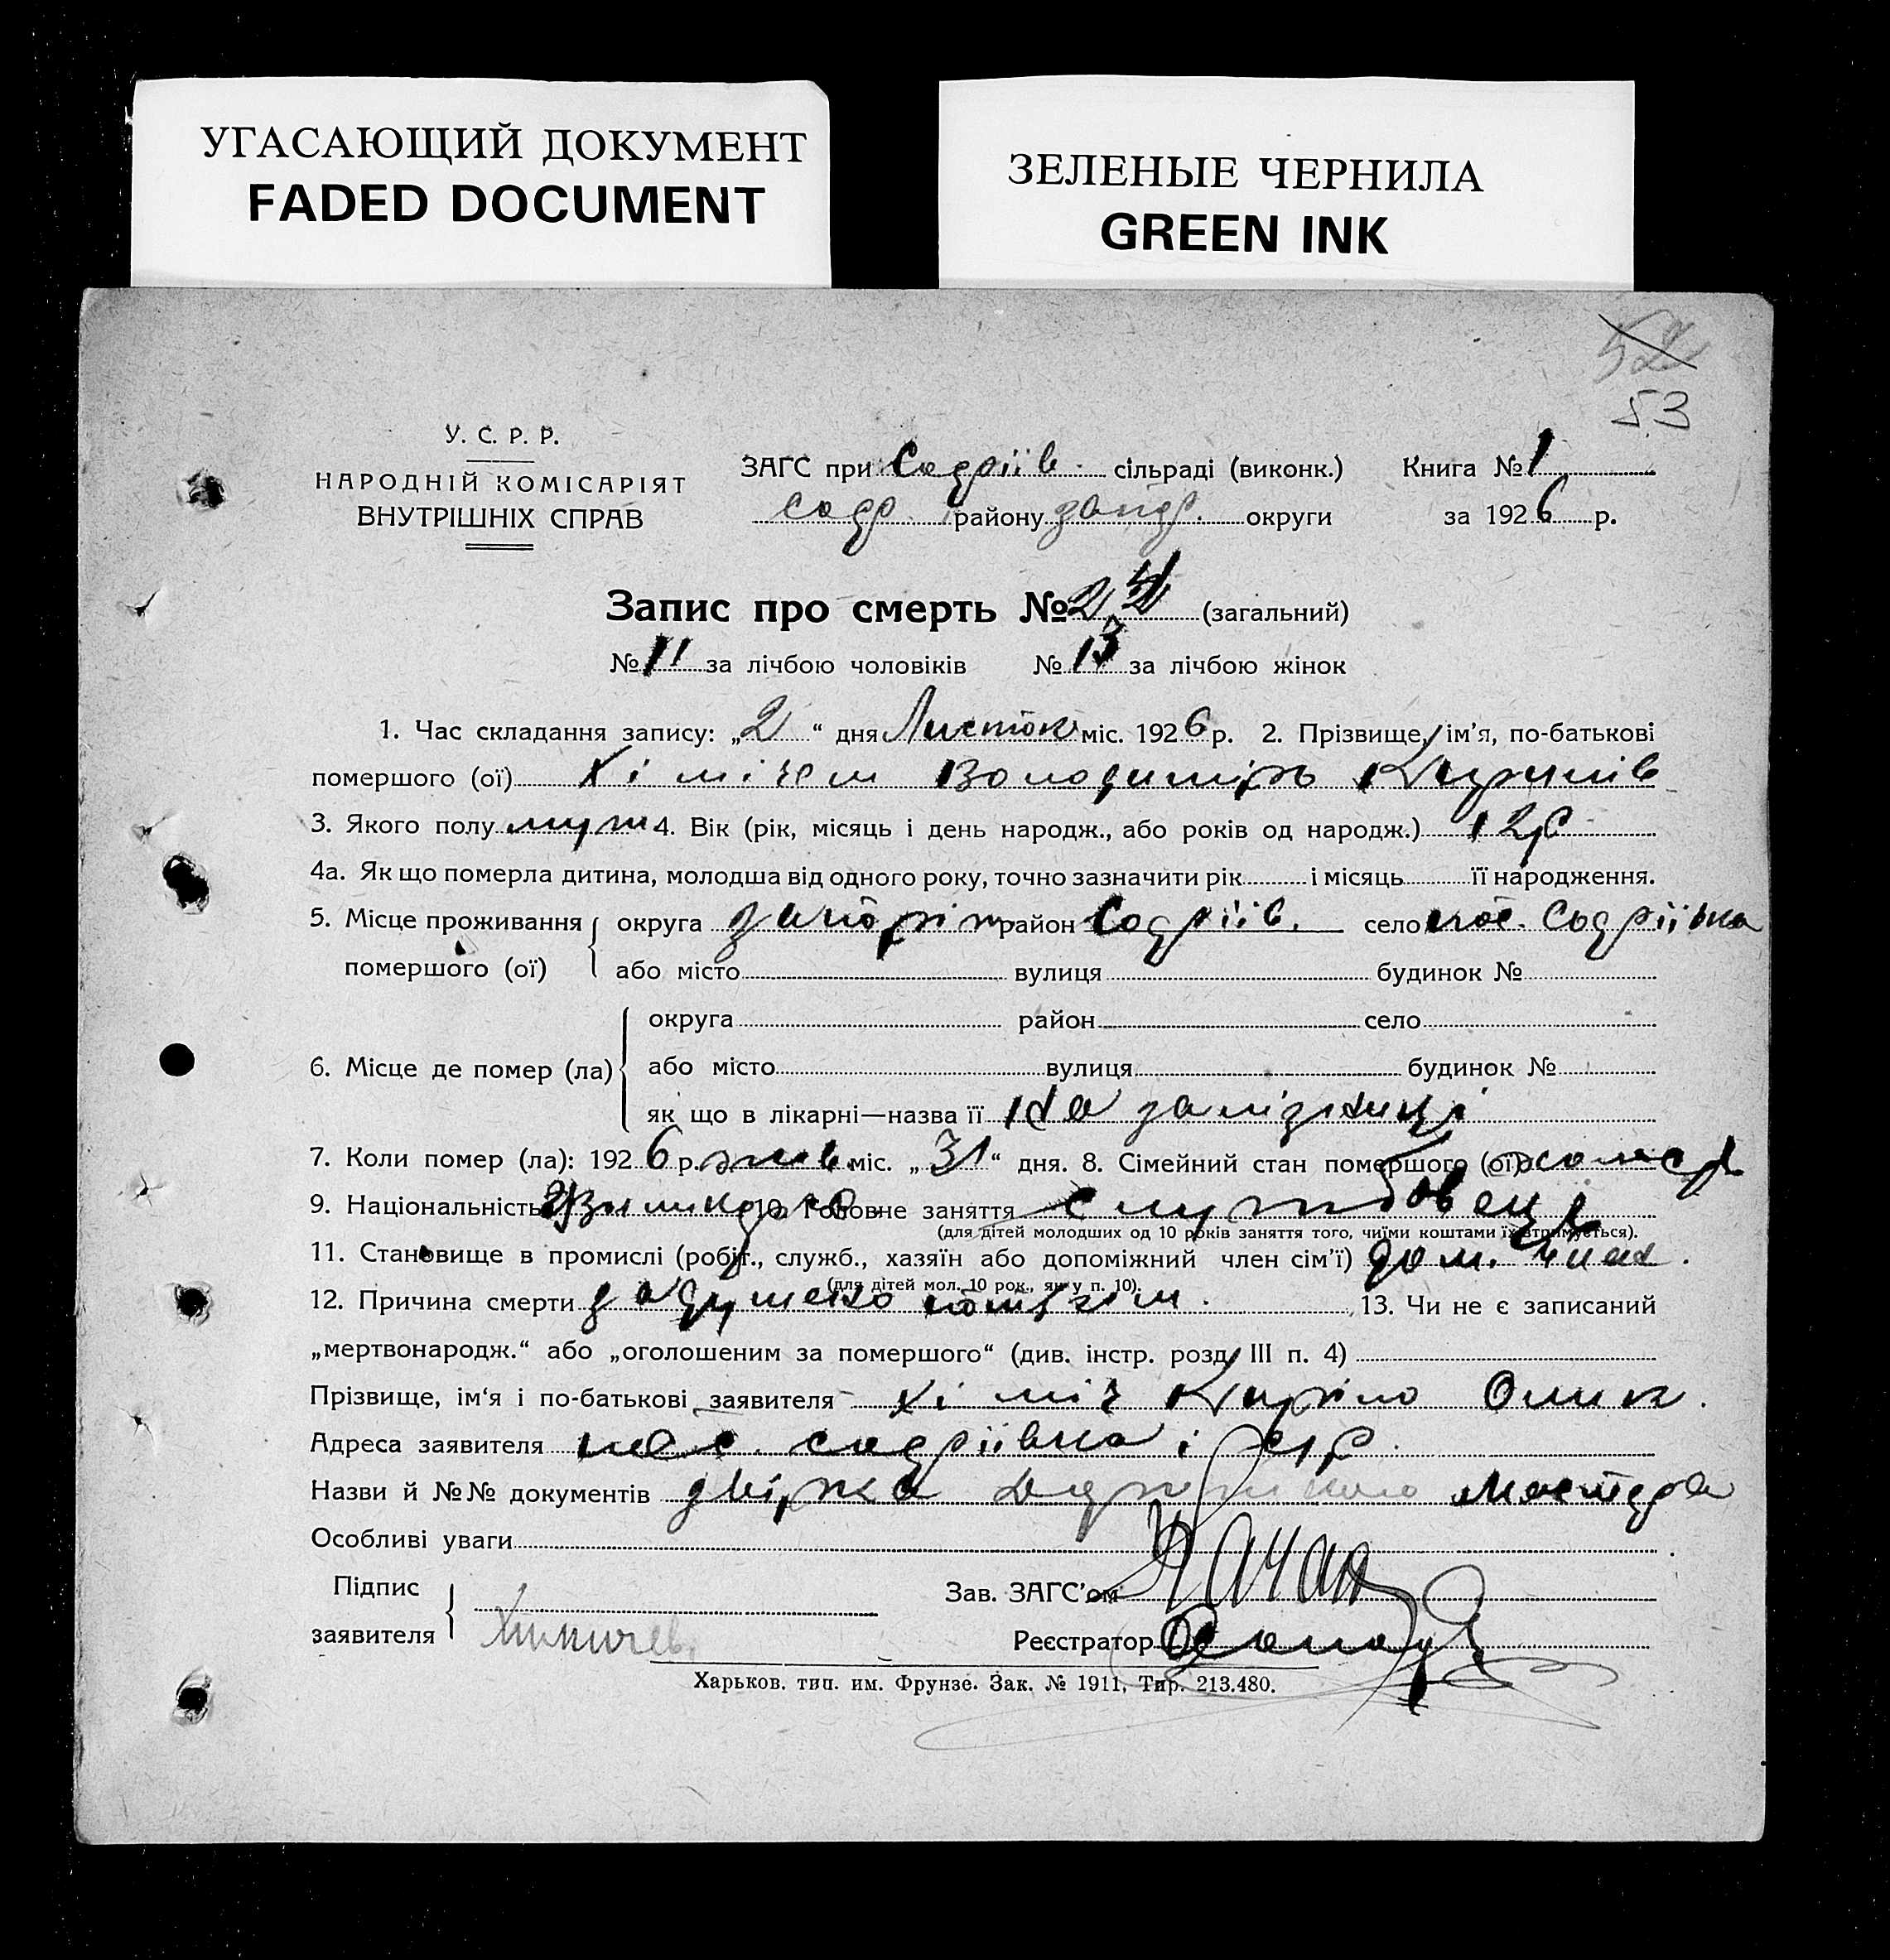 УГАСАЮЩИЙ ДОКУМЕНТ
FADED DOCUMENT
ЗЕЛЕНЫЕ ЧЕРНИЛА
GREEN INK
52
53
У. С. Р. Р.
НАРОДНІЙ КОМІСАРІЯТ
ВНУТРІШНІХ СПРАВ
ЗАГС при Софіїв. сільраді (виконк.) Книга № 1
соф. району запор. округи за 1926 р.
Запис про смерть № 24 (загальний)
№ 11 за лічбою чоловіків № 13 за лічбою жінок
1. Час складання запису: „2“ дня Листоп міс. 1926 р. 2. Прізвище, ім'я, по-батькові
помершого (ої) Хімічем Володимір Кирилів
3. Якого полу муж 4. Вік (рік, місяць і день народж., або років од народж.) 12 р
4а. Як що померла дитина, молодша від одного року, точно зазначити рік і місяць її народження.
5. Місце проживання помершого (ої) округа запоріж район Софіїв. село пос. Софіївка
або місто вулиця будинок №
6. Місце де помер (ла) округа район село
або місто вулиця будинок №
як що в лікарні—назва її На залізниці
7. Коли помер (ла): 1926 р. жов. міс. „31“ дня. 8. Сімейний стан помершого (ої)
9. Національність 10. Головне заняття службовець
(для дітей молодших од 10 років заняття того, чиїми коштами їх утримується).
11. Становище в промислі (робіт., служб., хазяїн або допоміжний член сім'ї) доп. член.
(для дітей мол. 10 рок., як у п. 10).
12. Причина смерти задушено потягом. 13. Чи не є записаний
„мертвонародж.“ або „оголошеним за помершого“ (див. інстр. розд. III п. 4)
Прізвище, ім'я і по-батькові заявителя Хіміч Кирило
Адреса заявителя пос. софіївка
Назви й №№ документів
Особливі уваги
Підпис заявителя
Зав. ЗАГС'ом Качан
Реєстратор
Харьков. тип. им. Фрунзе. Зак. № 1911, Тир. 213.480.